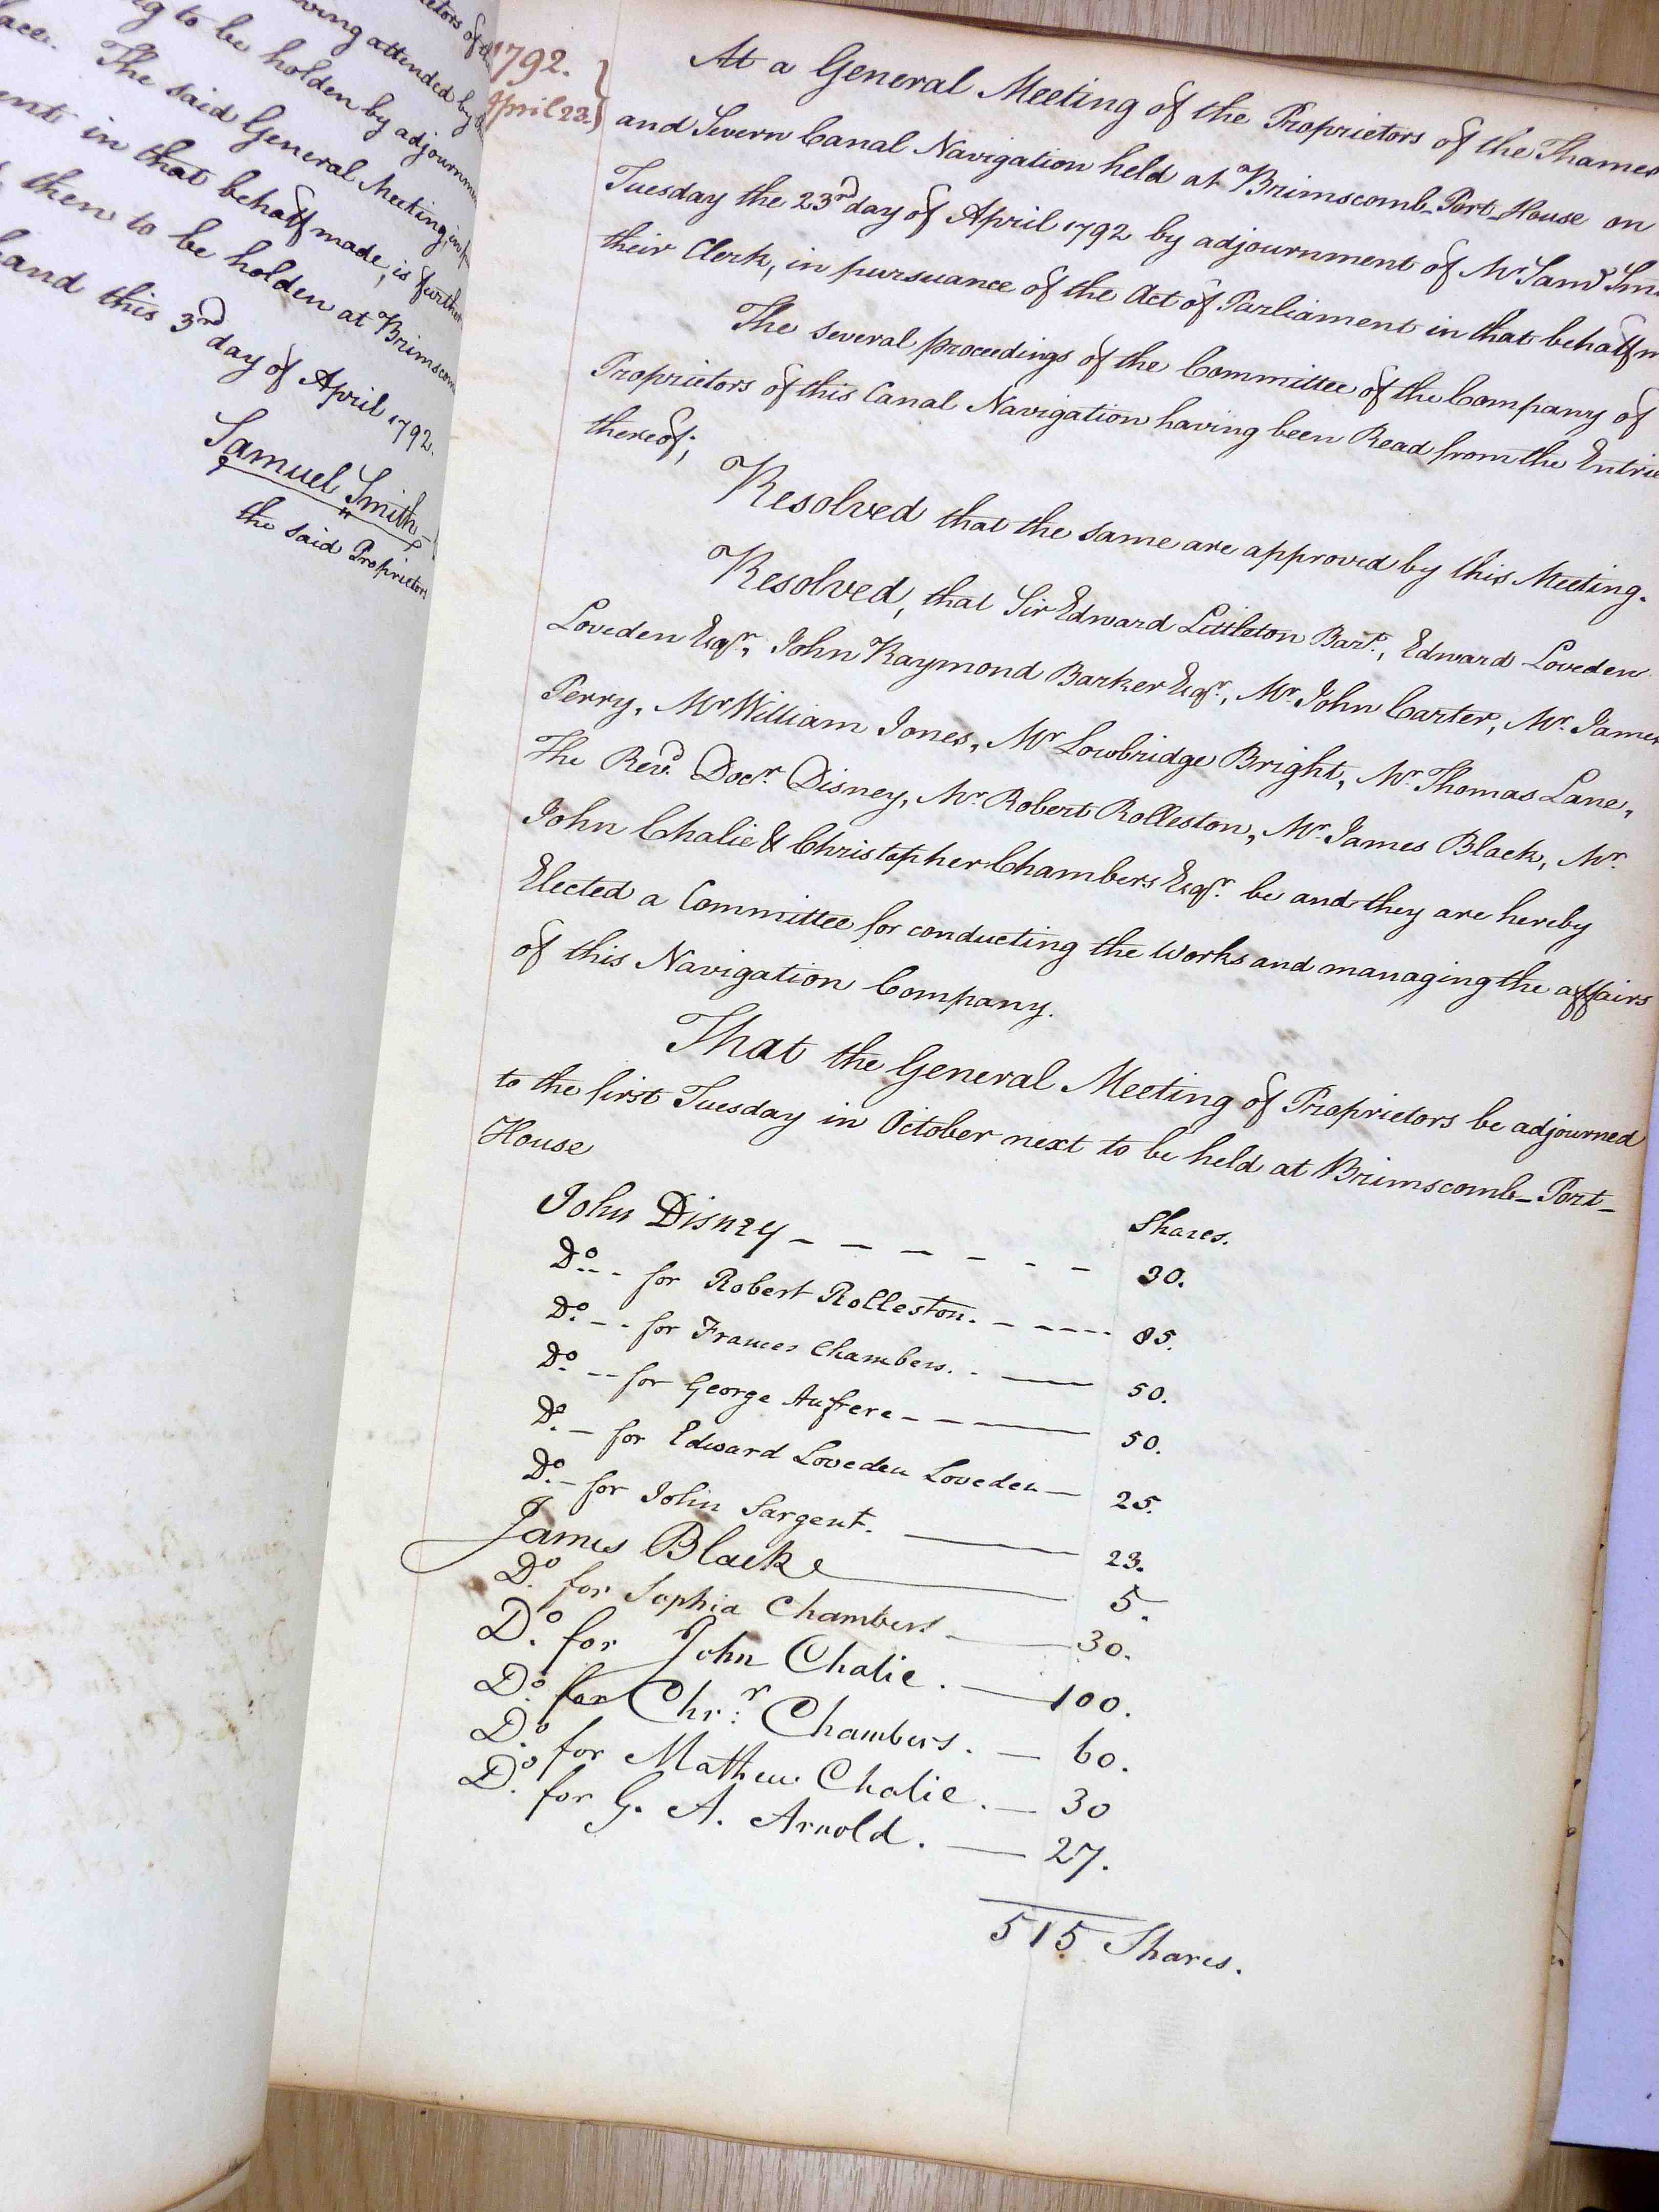 etors of
ving attended by
g to be holden by adjournm
ace. The said General Meeting, in
ent in that behalf made, is further
then to be holden at Brimscom
and this 3rd day of April 1792.
Samuel Smith
the said Proprietors
1792.
April 23.
At a General Meeting of the Proprietors of the Thames
and Severn Canal Navigation held at Brimscomb-Port-House on
Tuesday the 23rd day of April 1792 by adjournment of Mr Saml Smi
their Clerk, in pursuance of the Act of Parliament in that behalf m
The several proceedings of the Committee of the Company of
Proprietors of this Canal Navigation having been Read from the Entrie
thereof;
Resolved that the same are approved by this Meeting.
Resolved, that Sir Edward Littleton Bart., Edward Loveden
Loveden Esqr., John Raymond Barker Esqr., Mr. John Carter, Mr. James
Perry, Mr William Jones, Mr Lowbridge Bright, Mr. Thomas Lane,
The Revd. Docr. Disney, Mr. Robert Rolleston, Mr. James Black, Mr.
John Chalie & Christopher Chambers Esqr. be and they are hereby
Elected a Committee for conducting the Works and managing the affairs
of this Navigation Company.
That the General Meeting of Proprietors be adjourned
to the first Tuesday in October next to be held at Brimscomb-Port-
House
Shares.
John Disney - - - - - - 30.
Do. - - for Robert Rolleston. - - - - - 85.
Do. - - for Frances Chambers. - — 50.
Do. - - for George Aufrere - - — 50.
Do. - for Edward Loveden Loveden — 25.
Do. - for John Sargent. — 23.
James Black — 5.
Do. for Sophia Chambers — 30.
Do. for John Chalie. — 100.
Do. for Chr:r Chambers. — 60.
Do. for Mathew Chalie. — 30
Do. for G. A. Arnold. — 27.
515 Shares.